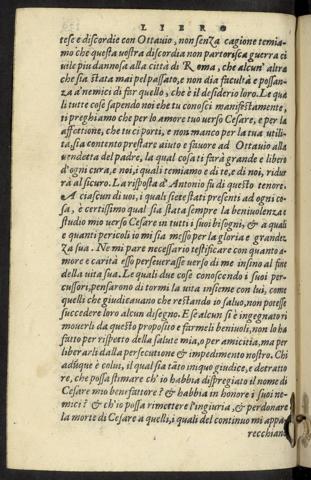 LIBRO
tese e discordie con Ottauio, non senza cagione temia
mo che questa uostra discordia non partorisca guerra ci
uile piu dannosa alla città di Roma, che alcun'altra
che sia stata mai pel passato, e non dia facultà e possan-
za à nemici di far quello, che è il desiderio loro. Le qua
li tutte cose sapendo noi che tu conosci manifestamente,
ti preghiamo che per lo amore tuo verso Cesare, e per la
affettione, che tu ci porti, e non manco per la tua utili
tà, sia contento prestare aiuto e fauore ad Ottauio alla
uendetta del padre, la qual cosa ti farà grande e libero
d'ogni cura, e noi, i quali temiamo e di te, e di noi, ridur
rà al sicuro. La risposta d'Antonio fu di questo tenore.
A ciascun di uoi, i quali siete stati presenti ad ogni co-
sa, è certissimo qual sia stata sempre la beniuolenza e
studio mio verso Cesare in tutti i suoi bisogni, & a quali
e quanti pericoli io mi sia messo per la gloria e grandez
za sua. Ne mi pare necessario testificare con quanto a-
more e carità esso perseuerasse verso di me insino al fine
della uita sua. Le quali due cose conoscendo i suoi per-
cussori, pensarono di tormi la uita insieme con lui, come
quelli che giudicauano che restando io saluo, non potesse
succedere loro alcun disegno. E se alcun si è ingegnato ri
mouerli da questo proposito e farmeli beniuoli, non lo ha
fatto per rispetto della salute mia, o per amicitia, ma per
liberarli dalla persecutione & impedimento nostro. Chi
adūque è colui, il qual sia tāto iniquo giudice, e detratto
re, che possa stimare ch'io habbia dispregiato il nome di
Cesare mio benefattore? & habbia in honore i suoi ne-
mici? & ch'io possa rimettere l'ingiuria, & perdonare
la morte di Cesare a quelli, i quali del continuo mi appa
recchiano